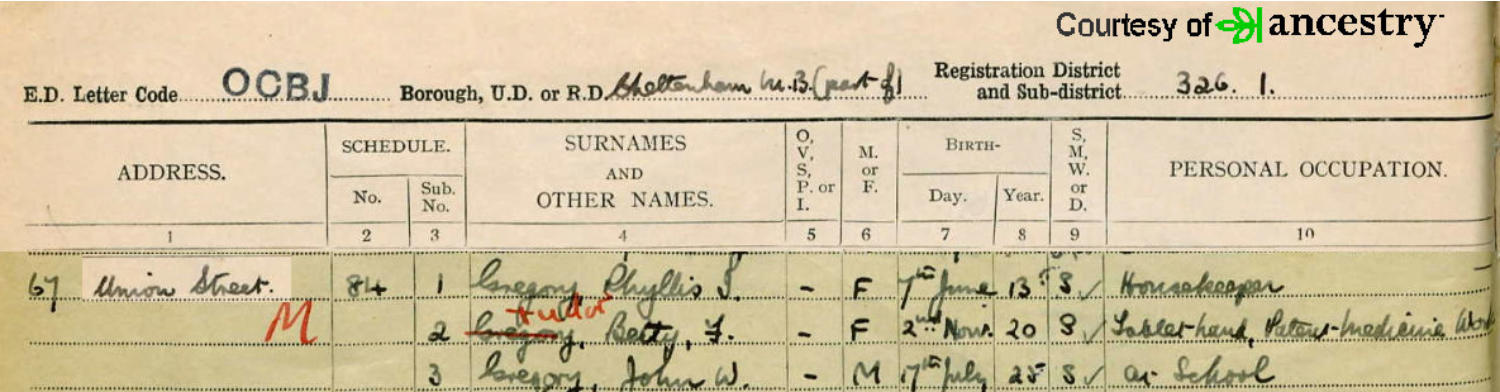 Courtesy of ancestry
E.D. Letter Code OCBJ Borough, U.D. or R.D. Cheltenham M.B. (part of) Registration District and Sub-district 326. 1.
ADDRESS. SCHEDULE. SURNAMES AND OTHER NAMES. O, V, S, P. or I. M. or F. BIRTH- S, M, W. or D. PERSONAL OCCUPATION.
No. Sub. No. Day. Year.
1 2 3 4 5 6 7 8 9 10
67 Union Street. 84 1 Gregory, Phyllis - F 7th June 13 S ✓ Housekeeper
M Tudor
2 Gregory, Betty, F. - F 2nd Nov. 20 S ✓ hand, Patent-medicine
3 Gregory, John W. - M 17th July 25 S ✓ at School